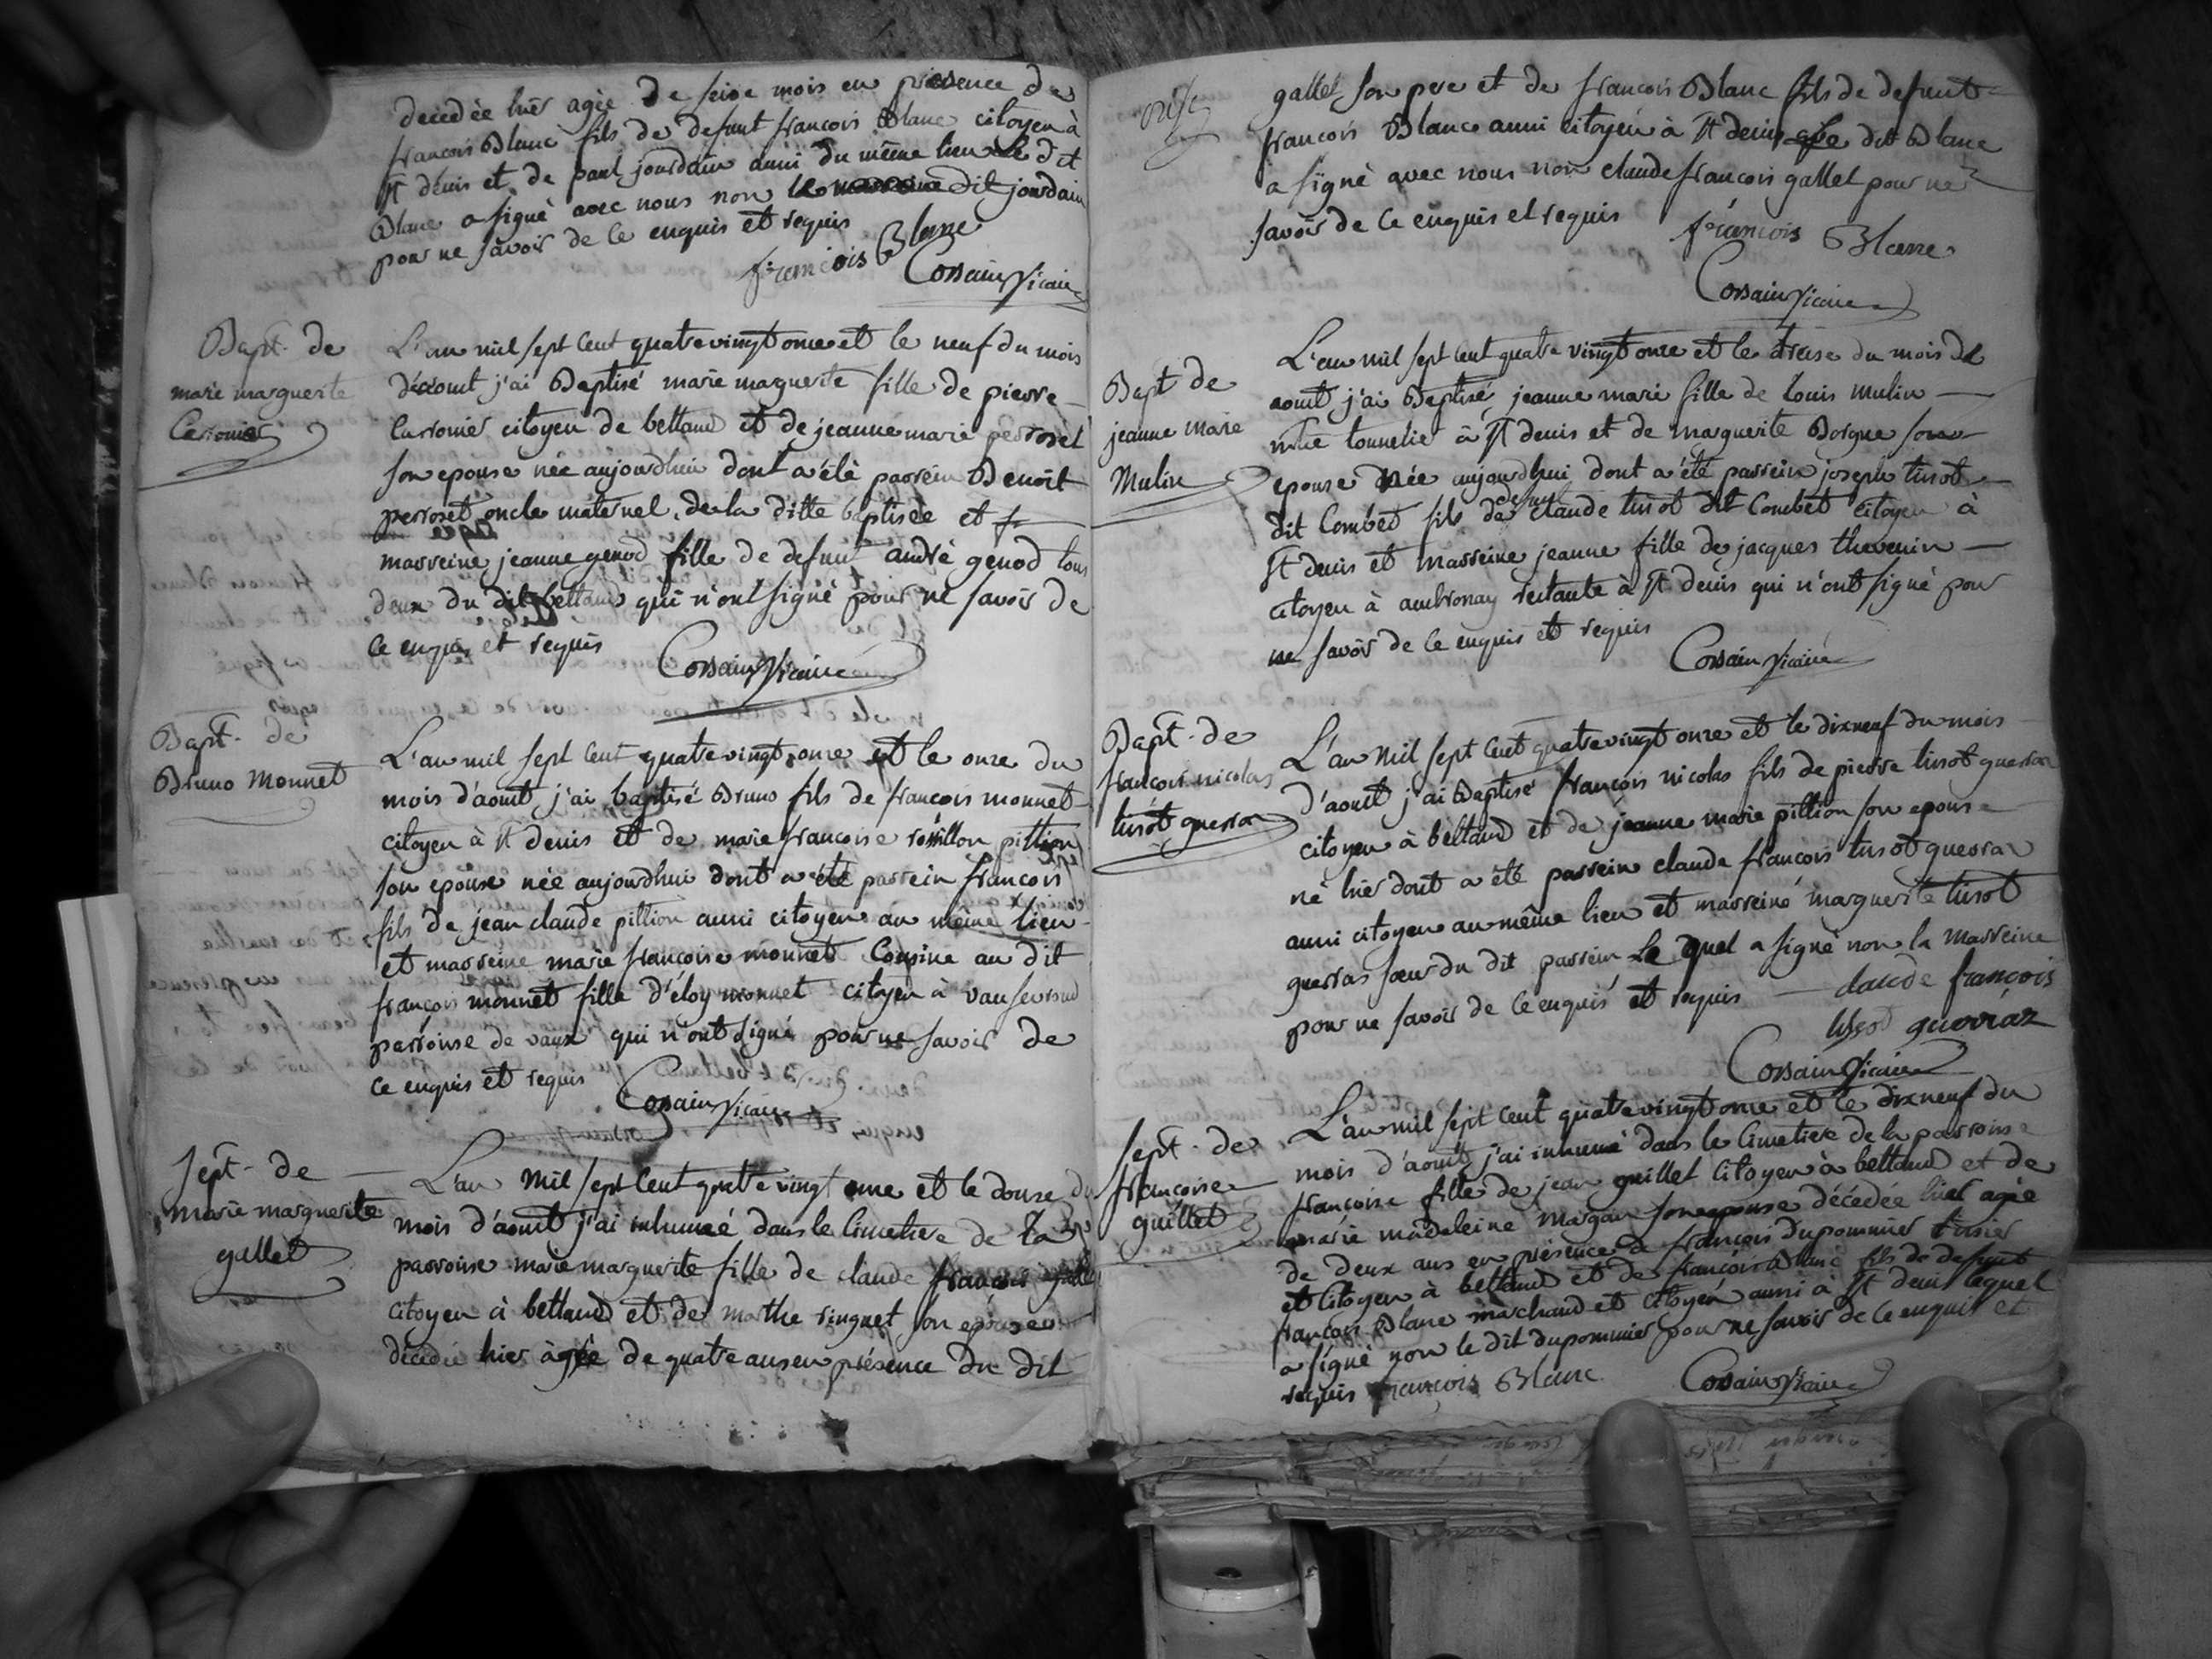 decedèe hier agèe de seize mois en presence de
françois Blanc fils de defunt françois Blanc citoyen à
St denis et de paul jourdain aussi du même lieu Le dit
Blanc a signé avec nous non dit jourdain
pour ne savoir de ce enquis et requis
françois Blanc
Corsain Vicaire
Bapt. de
marie marguerite
L'an mil sept cent quatrevingt onze et le neuf du mois
d'aoust j'ai Baptisé marie marguerite fille de pierre
citoyen de bettand et de jeanne marie perroset
son epouse née aujourdhui dont a été parrein Benoit
perroset oncle maternel de la ditte baptisée et
marreine jeanne genod fille de defunt andré genod tous
deux du dit bettand qui n'ont signé pour ne savoir de
ce enquis et requis
Corsain Vicaire
Bapt. de
Bruno Monnet
L'an mil sept cent quatrevingt onze et le onze du
mois d'aoust j'ai baptisé Bruno fils de françois monnet
citoyen à St denis et de marie francoise pittion
son epouse née aujourdhui dont a été parrein francois
fils de jean claude pittion aussi citoyen au même lieu
et marreine marie francoise monnet Cousine au dit
françois monnet fille d'éloy monnet citoyen à
parroisse de vaux qui n'ont signé pour ne savoir de
ce enquis et requis
Corsain Vicaire
Sept. de
marie marguerite
gallet
L'an mil sept cent quatrevingt onze et le douze du
mois d'aoust j'ai inhumeé dans le cimetiere de la
parroisse marie marguerite fille de claude françois gallet
citoyen à bettand et de marthe ringuet son epouse
décedée hier âgée de quatre ans en présence du dit
gallet son pere et de francois Blanc fils de defunt
françois Blanc aussi citoyen à St denis Le dit Blanc
a signé avec nous non claude francois gallet pour ne
savoir de ce enquis et requis
françois Blanc
Corsain Vicaire
Bapt de
jeanne marie
Mulin
L'an mil sept cent quatre vingt onze et le treise du mois de
aoust j'ai Baptisé jeanne marie fille de Louis mulin
tonnelie à St denis et de marguerite Borgne son
epouse Née aujourdhui dont a été parrein joseph tirot
defunt
dit Combet fils de claude tirot dit Combet citoyen à
St denis et marreine jeanne fille de jacques thevenin
citoyen à ambronay restante à St denis qui n'ont signé pour
ne savoir de ce enquis et requis
Corsain Vicaire
Bapt. de
francois nicolas
tirot guerra
L'an mil sept cent quatrevingt onze et le dixneuf du mois
d'aoust j'ai Baptisé françois nicolas fils de pierre tirot guerra
citoyen à bettand et de jeanne marie pittion son epouse
né hier dont a été parrein claude françois tirot guerra
aussi citoyen au même lieu et marreine marguerite tirot
guerras soeur du dit parrein Le quel a signé non la marreine
pour ne savoir de ce enquis et requis
claude françois
tisot guerraz
Corsain Vicaire
Sept. de
françoise
guillet
L'an mil sept cent quatrevingt onze et le dixneuf du
mois d'aoust j'ai inhumé dans le cimetiere de la parroisse
françoise fille de jean guillet citoyen à bettand et de
marie madeleine son epouse décédée hier agée
de deux ans en présence de francois dupommier
et citoyen à bettand et de francois Blanc fils de defunt
françois Blanc marchand et citoyen aussi à St denis lequel
a signé non le dit dupommier pour ne savoir de ce enquis et
requis
françois Blanc
Corsain Vicaire